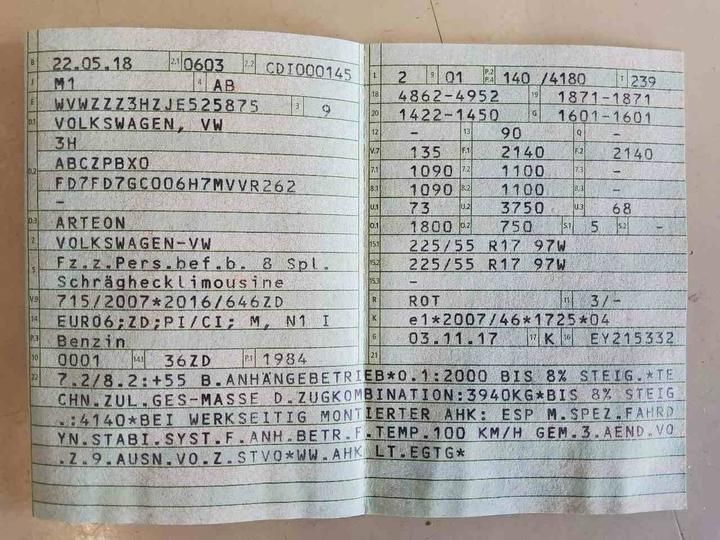 B 22.05.18 2.1 0603 2.2 CDI000145
J M1 4 AB
E WVWZZZ3HZJE525875 3 9
D.1 VOLKSWAGEN, VW
3H
D.2 ABCZPBX0
FD7FD7GC006H7MVVR262
-
D.3 ARTEON
2 VOLKSWAGEN-VW
5 Fz.z.Pers.bef.b. 8 Spl.
Schräghecklimousine
V.9 715/2007*2016/646ZD
14 EURO6;ZD;PI/CI; M, N1 I
P.3 Benzin
10 0001 14.1 36ZD P.1 1984
L 2 9 01 P.2 P.4 140 /4180 T 239
18 4862-4952 19 1871-1871
20 1422-1450 G 1601-1601
12 - 13 90 Q -
V.7 135 F.1 2140 F.2 2140
7.1 1090 7.2 1100 7.3 -
8.1 1090 8.2 1100 8.3 -
U.1 73 U.2 3750 U.3 68
O.1 1800 O.2 750 S.1 5 S.2 -
15.1 225/55 R17 97W
15.2 225/55 R17 97W
15.3 -
R ROT 11 3/-
K e1*2007/46*1725*04
6 03.11.17 17 K 16 EY215332
21
22 7.2/8.2:+55 B.ANHÄNGEBETRIEB*O.1:2000 BIS 8% STEIG.*TE
CHN.ZUL.GES-MASSE D.ZUGKOMBINATION:3940KG*BIS 8% STEIG
.:4140*BEI WERKSEITIG MONTIERTER AHK: ESP M.SPEZ.FAHRD
YN.STABI.SYST.F.ANH.BETR.F.TEMP.100 KM/H GEM.3.AEND.VO
.Z.9.AUSN.VO.Z.STVO*WW.AHK LT.EGTG*